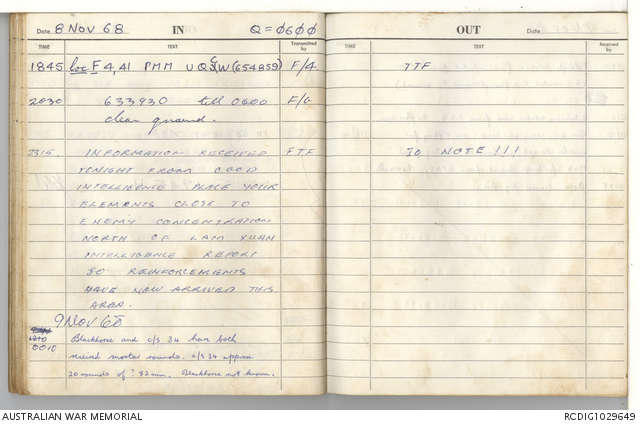 Date 8 NOV 68 IN Q = Ø6ØØ
TIME TEXT Transmitted by
1845 loc F 4, 41 PMM UQGW (654859) F/4
2030 633930 till 0600 F/6
clear ground.
2315. INFORMATION RECEIVED FTF
TONIGHT FROM GOOD
INTELLIGENCE PLACE YOUR
ELEMENTS CLOSE TO
ENEMY CONCENTRATION
NORTH OF LAM XUAN
INTELLIGENCE REPORT
50 REINFORCEMENTS
HAVE NOW ARRIVED THIS
AREA.
9 NOV 68
0010 Blackbone and c/s 34 have both
mortar rounds. c/s 34 approx
20 rounds of ? 82mm. Blackbone not known.
OUT Date
TIME TEXT Received by
TTF
TO NOTE !!!
AUSTRALIAN WAR MEMORIAL RCDIG1029649